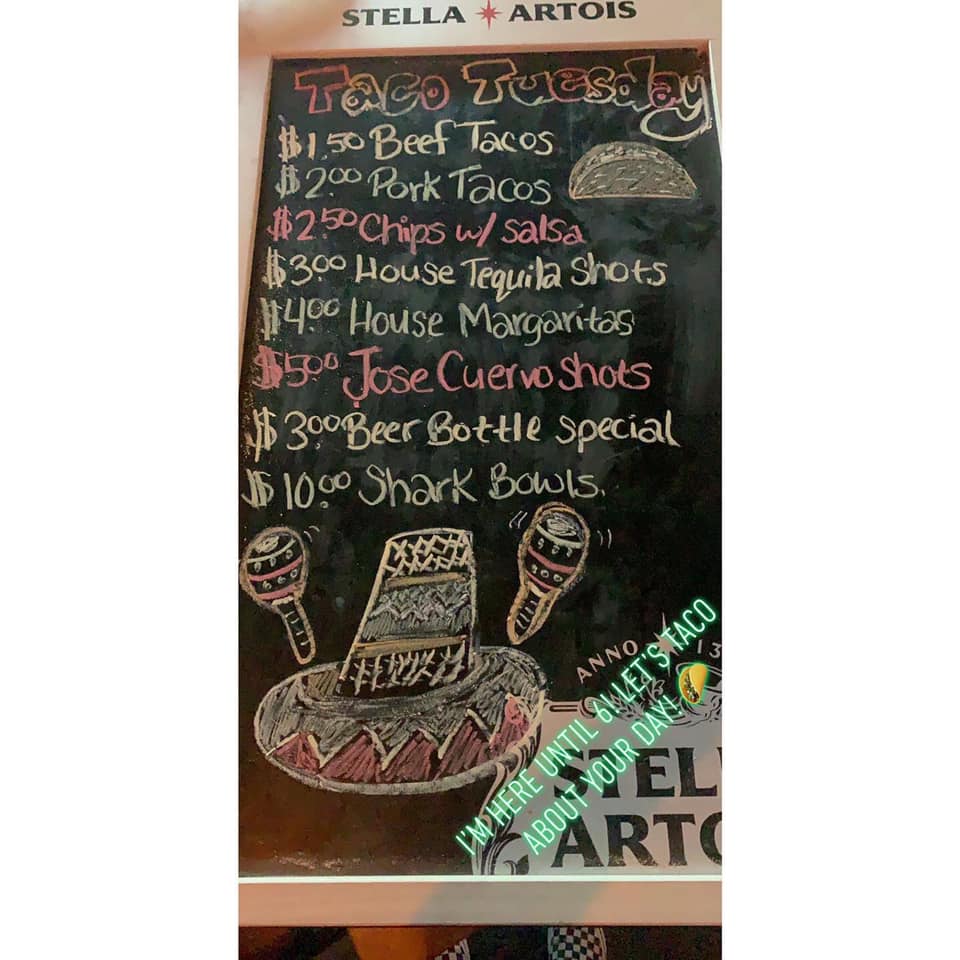 STELLA ARTOIS
Taco Tuesday
$1.50 Beef Tacos
$2.00 Pork Tacos
$2.50 Chips w/ salsa
$3.00 House Tequila Shots
$4.00 House Margaritas
$5.00 Jose Cuervo Shots
$3.00 Beer Bottle special
$10.00 Shark Bowls.
ANNO 13
I'M HERE UNTIL 6! LET'S TACO
ABOUT YOUR DAY! 🌮
STEL
ARTO